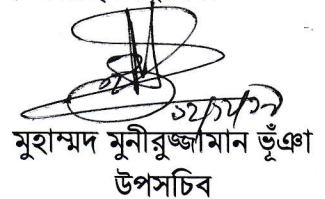 মুহাম্মদ মুনীরুজ্জামান ভূঁঞা
উপসচিব